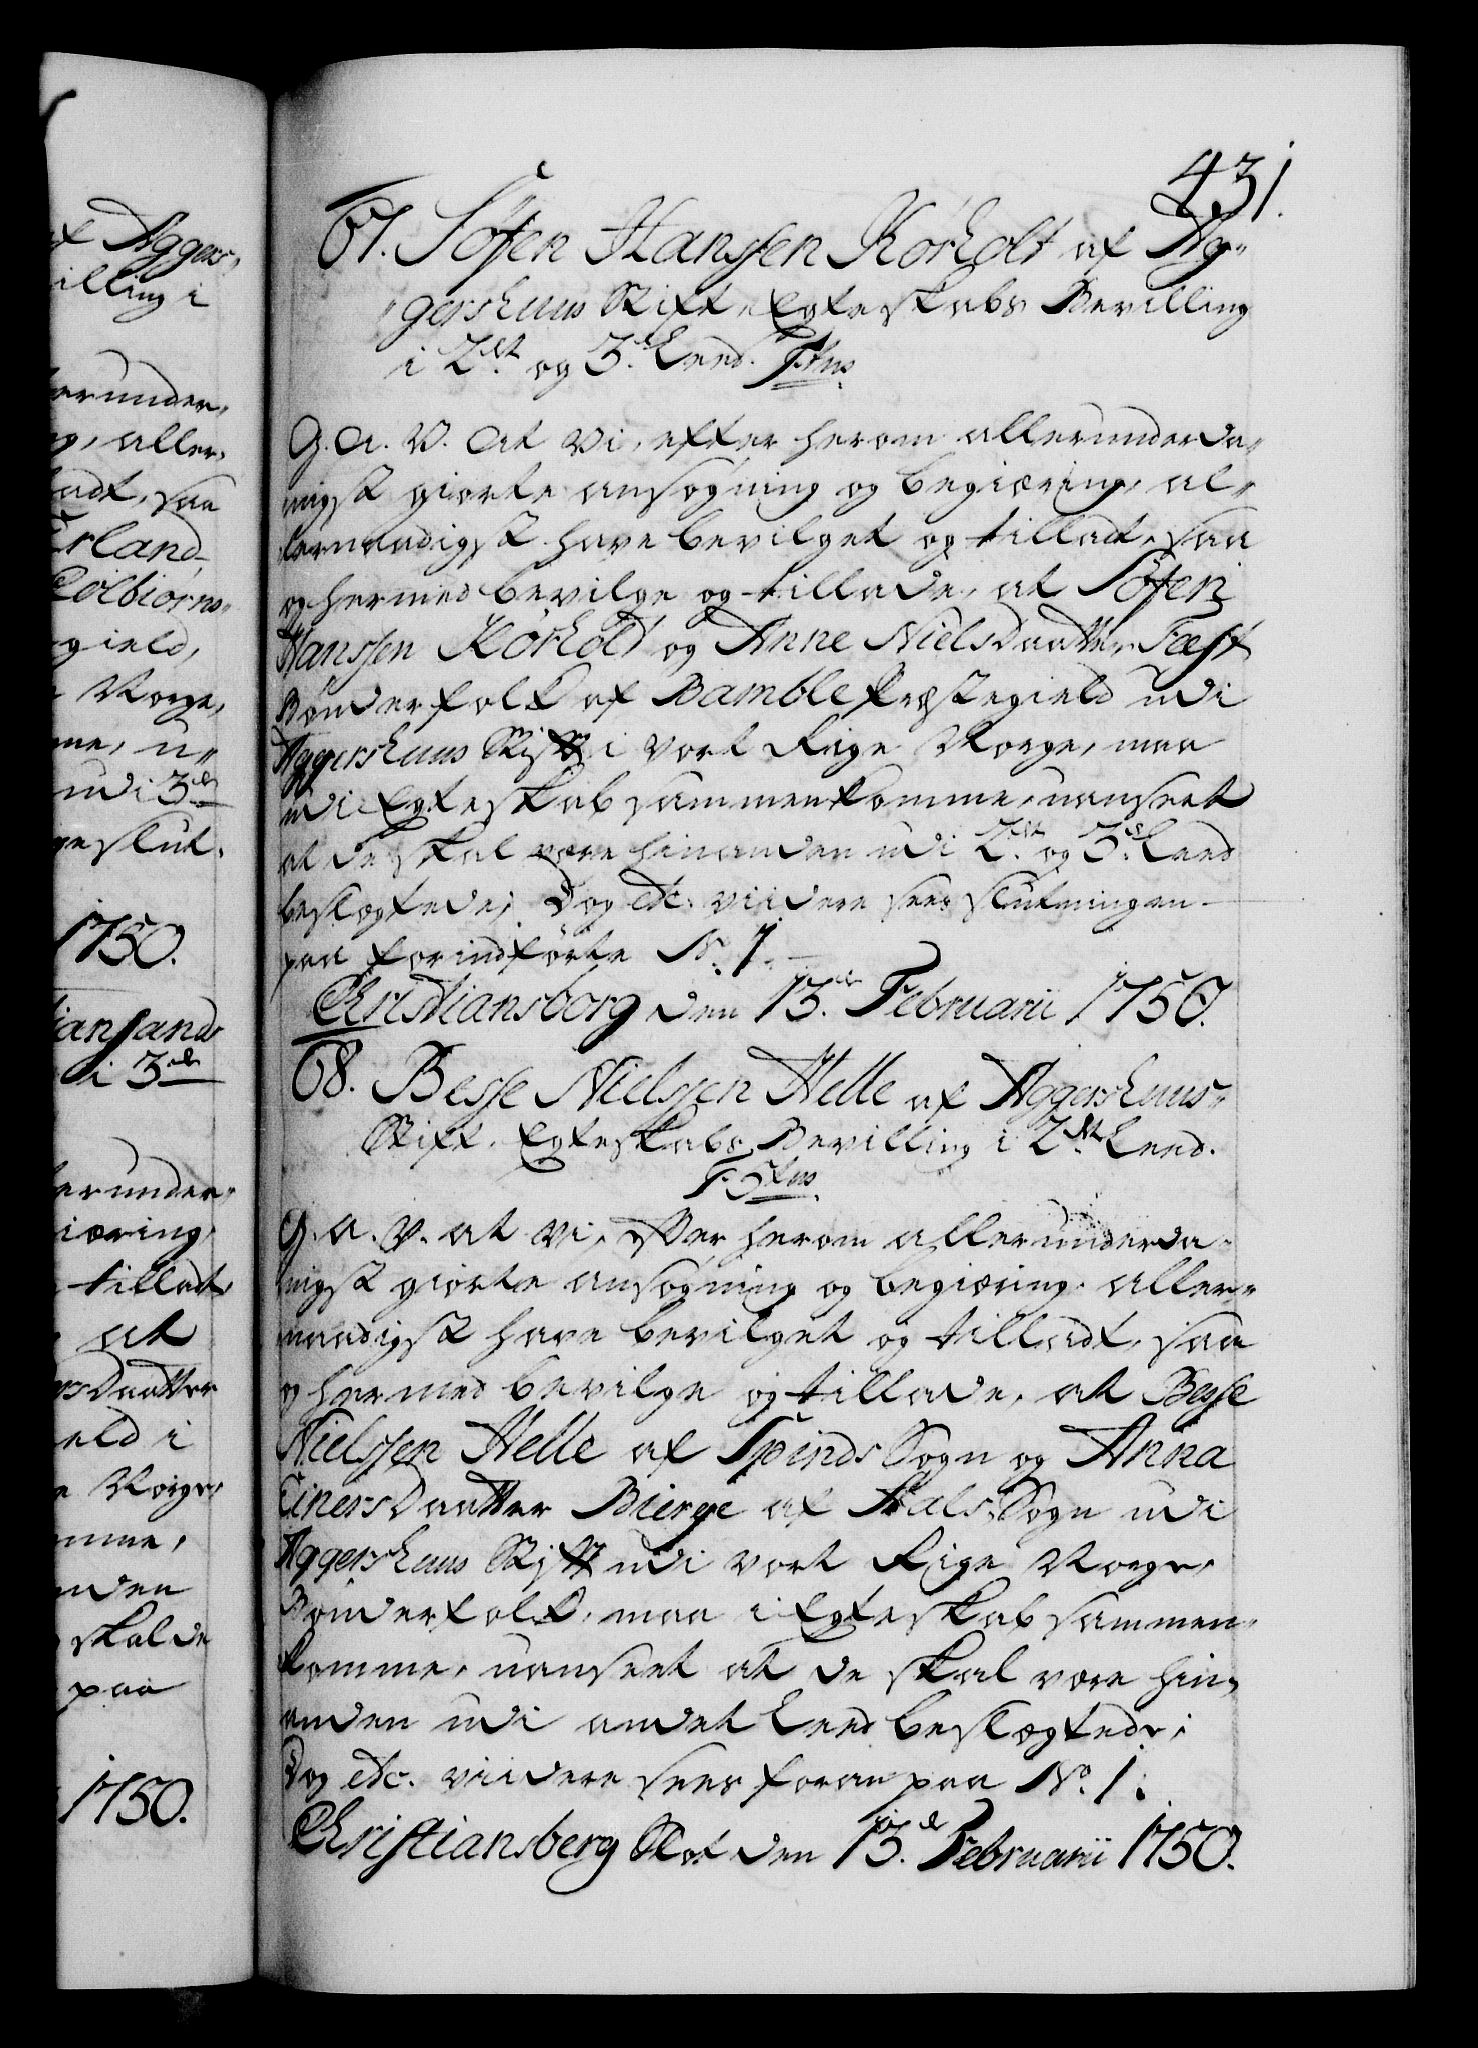 431.
67. Sören Hanssen Körholt af Ag-
gershuus Stift, Egteskabs Bevilling
i 2det og 3de Leed. F: 5tus
G. A. V. At Vi, efter herom allerunderda-
nigst giorte ansøgning og begiæring, al-
lernaadigst have bevilget og tilladt, saa
og hermed bevilge og tillade, at Sören
Hanssen Körholt og Anne NielsDaatter, Fæst
Bønderfolk af Bamble Præstegield udi
Aggershuus Stift i vort Rige Norge, maa
udi Egteskab sammenkomme, uanseet
at de skal være hinanden udi 2det og 3de Leed
beslægtede; Dog etc. viidere sees slutningen
paa forindførte No. 1.
Christiansborg den 13de Februarii 1750.
68. Besse Nielssen Helle af Aggershuus
Stift, Egteskabs Bevilling i 2det Leed.
F: 5tus
G. A. V. at Vi, efter herom allerunderda-
nigst giorte ansøgning og begiæring, aller-
naadigst have bevilget og tilladt, saa
og hermed bevilge og tillade, at Besse
Nielssen Helle af Spinds Sogn og Anna
EinersDaatter Bierge af Hals Sogn udi
Aggershuus Stift udi vort Rige Norge,
Bønderfolk, maa i Egteskab sammen-
komme, uanseet at de skal være hin-
anden udi andet Leed beslægtede;
Dog etc. viidere sees foran paa No. 1.
Christiansberg Slot den 13de Februarii 1750.
af Aggers-
illing i
erunder-
og, aller-
ladt, saa
Erland
Colbiørns-
gield,
Norge,
me, u-
udi 3de
eslut.
1750.
iansands
i 3de
erunder-
iæring,
tilladt,
at
rsDaatter
eld i
Norge,
mme,
nden
skal de
paa
1750.